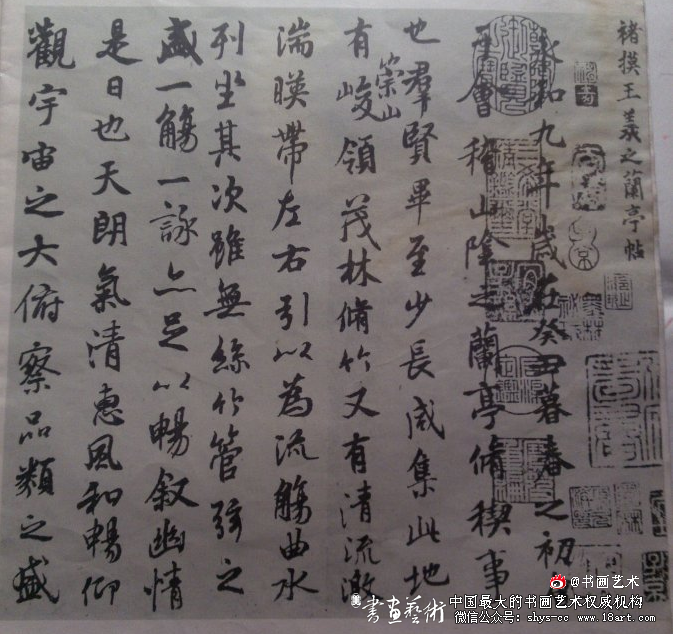 褚摸王羲之蘭亭帖
永和九年歲在癸丑暮春之初會
于會稽山陰之蘭亭脩稧事
也羣賢畢至少長咸集此地
有崇山峻領茂林脩竹又有清流激
湍暎帶左右引以為流觴曲水
列坐其次雖無絲竹管弦之
盛一觴一詠亦足以暢敘幽情
是日也天朗氣清惠風和暢仰
觀宇宙之大俯察品類之盛
@书画艺术
書畫藝術
中国最大的书画艺术权威机构
微信公众号：shys-cc www.18art.com